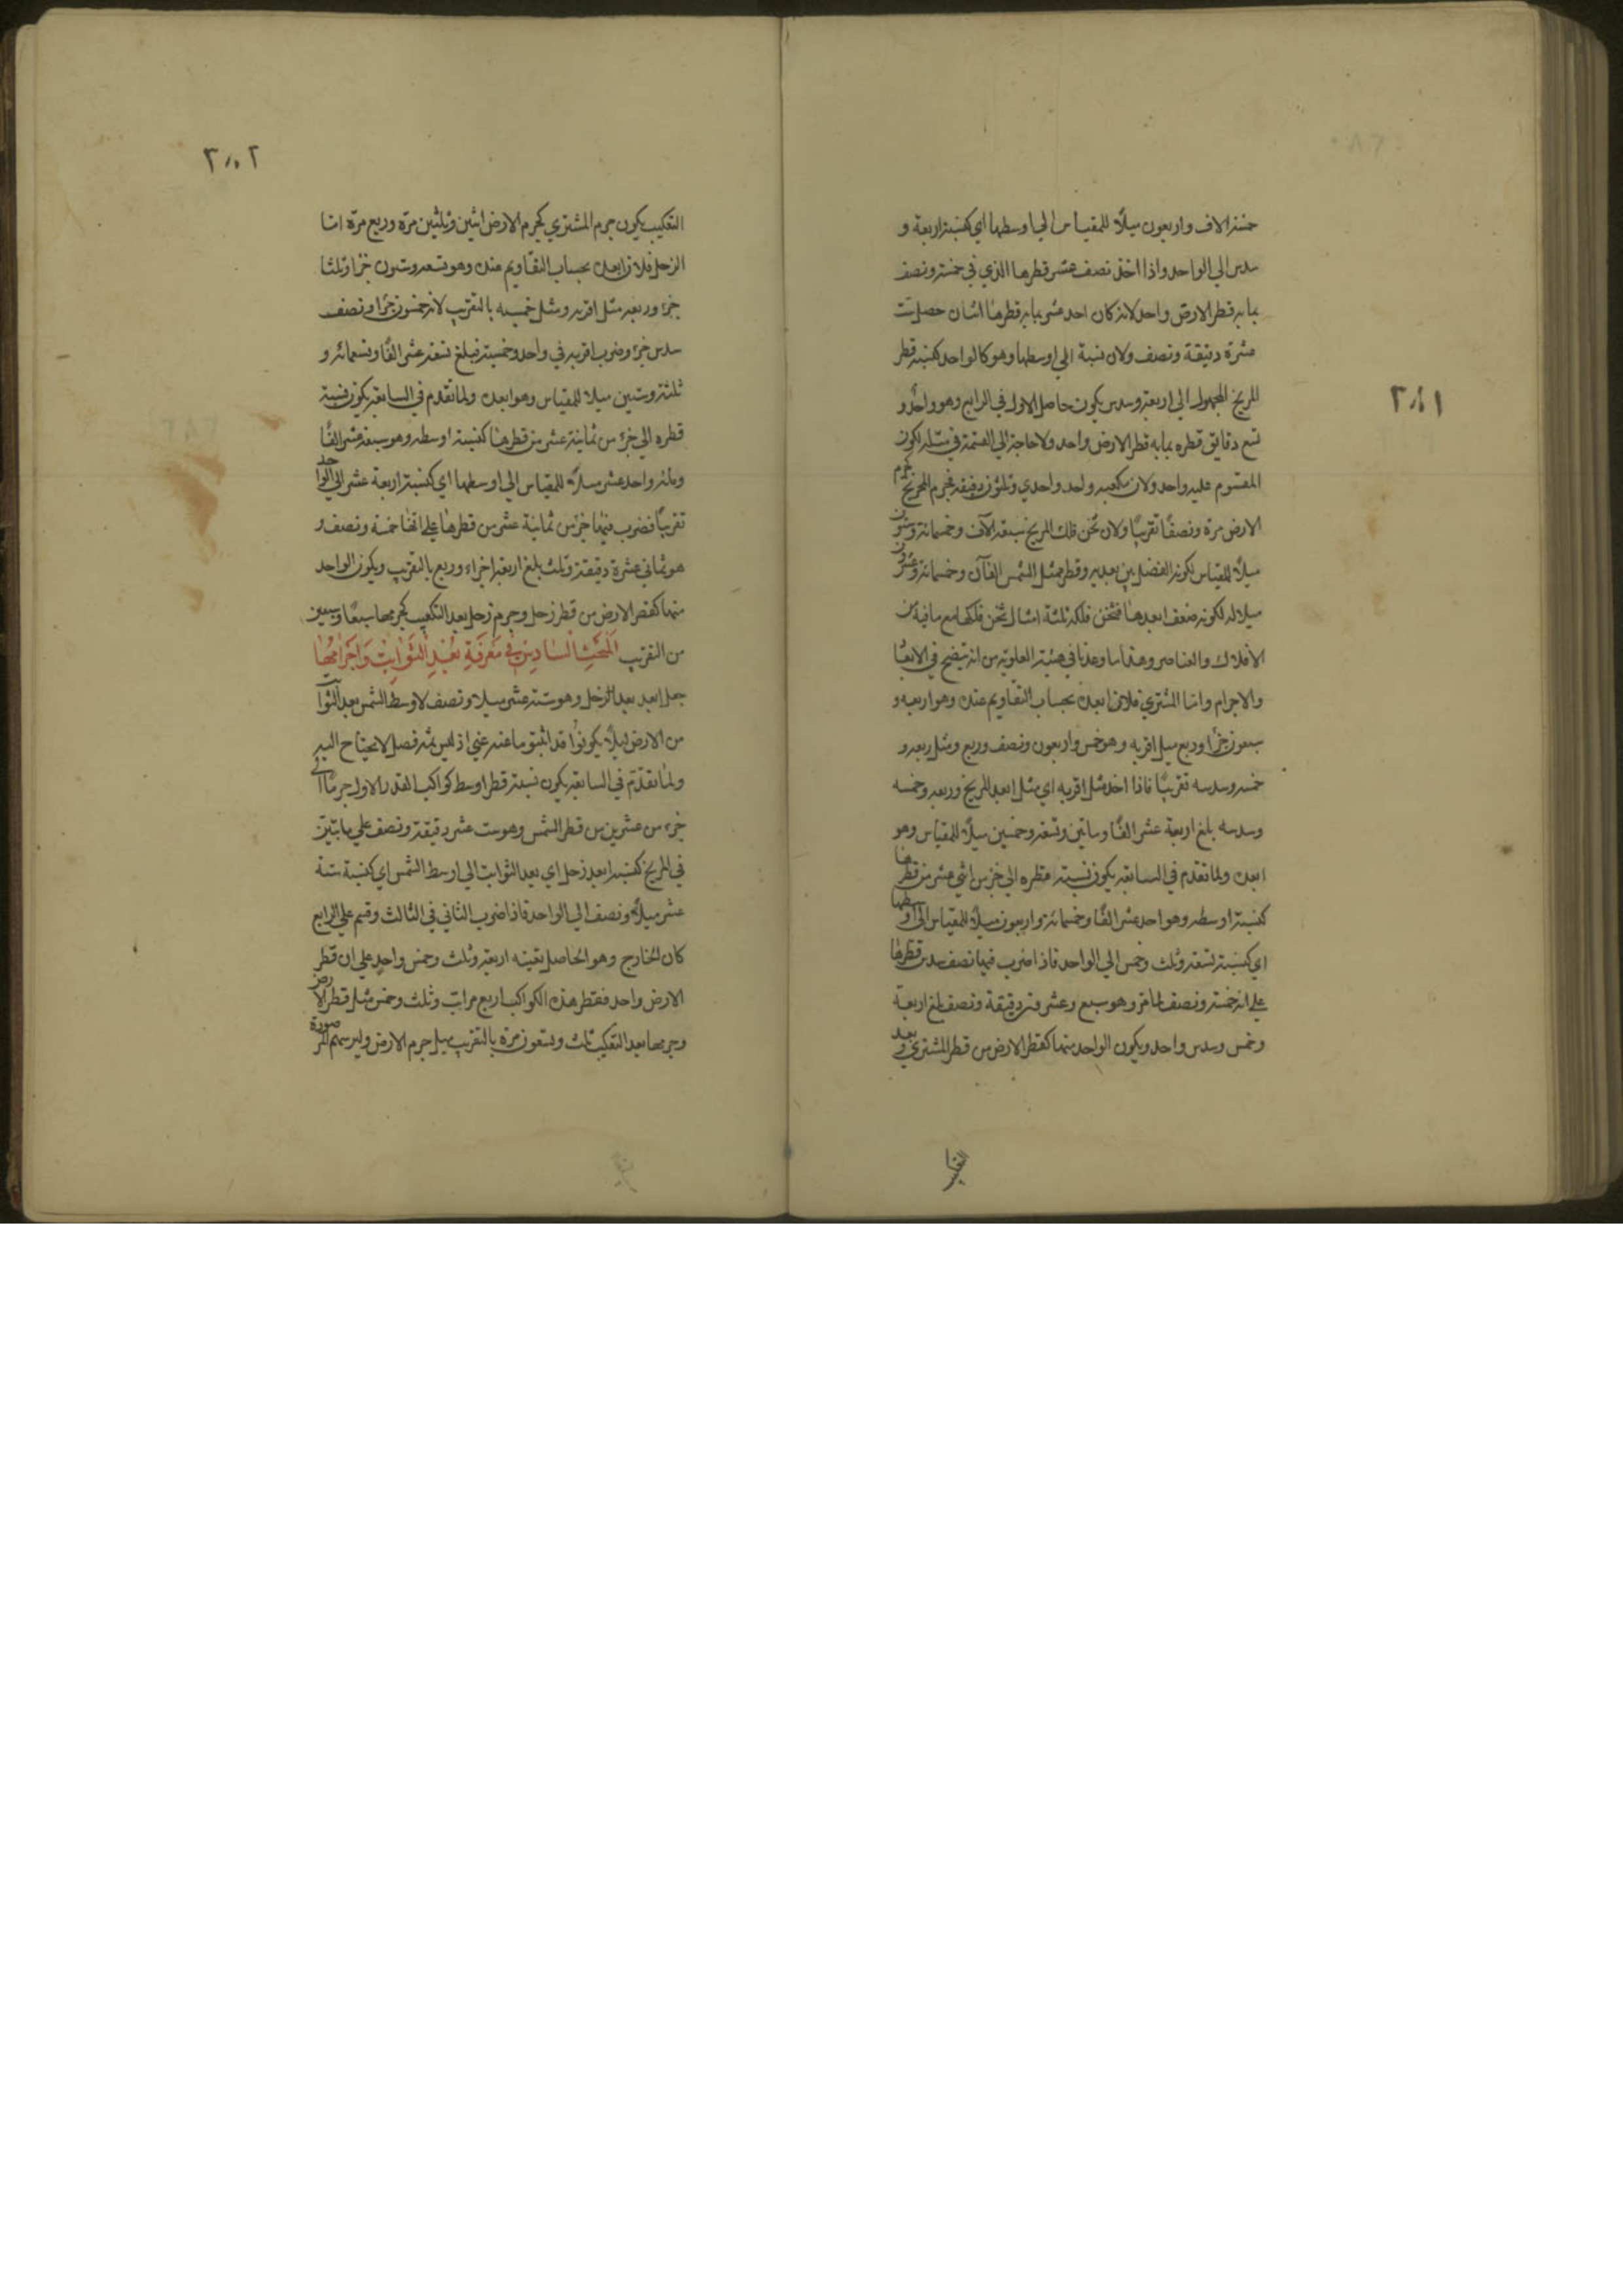 ٢٨١
خمسة الاف واربعون ميلاً للمقياس الي اوسطها اي كنسبة اربعة و
سدس الي الواحد واذا اخذ نصف عشر قطرها الذي في خمسة ونصف
بما به قطر الارض واحد لانه كان احد عشر بما به قطرها اثنان حصل ست
عشرة دقيقة ونصف ولان نسبة الي اوسطها وهو كالواحد كنسبة قطر
المريخ المجهول الي اربعة وسدس يكون حاصل الاول في الرابع وهو واحد و
تسع دقايق قطره بما به قطر الارض واحد ولا حاجة الي القسمة في مثله لكون
المقسوم عليه واحد ولان مكعبه واحد واحدي وثلثون دقيقة فجرم المريخ كجرم
الارض مرة ونصفًا تقريبًا ولان ثخن فلك المريخ سبعة الآف وخمسمائة وستون
ميلاً للمقياس لكونه الفضل بين بعديه وقطر ممثل الشمس الفان وخمسمائة وعشرون
ميلا له لكونه ضعف ابعدها فثخن فلكه ثلثة امثال ثخن فلكها مع ما فيه من
الافلاك والعناصر وهذا ما وعدنا في هيئة العلوية من انه يتضح في الابعاد
والاجرام واما المشتري فلان ابعده بحساب التقاويم عنده وهو اربعة و
سبعون جزًا وربع مثل اقربه وهو خمس واربعون ونصف وربع ومثل ربعه و
خمسه وسدسه تقريبًا فاذا اخذ مثل اقربه اي مثل ابعد المريخ وربعه وخمسه
وسدسه بلغ اربعة عشر الفًا ومايتين وتسعة وخمسين ميلاً للمقياس وهو
ابعده ولما تقدم في السابقة يكون نسبة قطره الي جزء من اثني عشر من قطرها
كنسبة اوسطه وهو احد عشر الفًا وخمسمائة واربعون ميلاً للمقياس الي اوسطها
اي كنسبة تسعة وثلث وخمس الي الواحد فاذا ضرب فيها نصف سدس قطرها
علي انه خمسة ونصف لما مر وهو سبع وعشرون دقيقة ونصف بلغ اربعة
وخمس وسدس واحد ويكون الواحد منها كقطر الارض من قطر المشتري وبعد
٢٨٢
التكعيب يكون جرم المشتري كجرم الارض اثنين وثلثين مرة وربع مرة اما
الزحل فلان ابعده بحساب التقاويم عنده وهو تسعة وستون جزا وثلثا
جزء وربعه مثل اقربه ومثل خمسيه بالتقريب لانه خمسون جزًا ونصف
سدس جزء وضرب اقربه في واحد وخمسيه فبلغ تسعة عشر الفًا وتسعمائة و
ثلثة وستين ميلا للمقياس وهو ابعده ولما تقدم في السابقة يكون نسبة
قطره الي جزء من ثمانية عشر من قطرها كنسبة اوسطه وهو سبعة عشر الفًا
ومائة واحد عشر ميلاً للمقياس الي اوسطها اي كنسبة اربعة عشر الي الواحد
تقريبًا فضرب فيها جزء من ثمانية عشر من قطرها علي انها خمسة ونصف و
هو ثماني عشرة دقيقة وثلث بلغ اربعة اجزاء وربع بالتقريب ويكون الواحد
منها كقطر الارض من قطر زحل وجرم زحل بعد التكعيب كجرمها سبعًا وسبعين
من التقريب المبحث السادس في معرفة بعد الثوابت واجرامها
جعل ابعد بعد الزحل وهو ستة عشر ميلا ونصف لاوسط الشمس بعد الثوابت
من الارض ليلاً يكونوا قد اثبتو ما عنه غني اذ ليس ثمه فصل لا يحتاج اليه
ولما تقدم في السابقة يكون نسبة قطر اوسط كواكب القدر الاول جرمًا الي
جزء من عشرين من قطر الشمس وهو ست عشر دقيقة ونصف علي ما تبين
في المريخ كنسبة ابعد زحل اي بعد الثوابت الي اوسط الشمس اي كنسبة ستة
عشر ميلاً ونصف الي الواحد فاذا ضرب الثاني في الثالث وقسم علي الرابع
كان الخارج وهو الحاصل بعينه اربعة وثلث وخمس واحد علي ان قطر
الارض واحد فقطر هذه الكواكب اربع مرات وثلث وخمس مثل قطر الارض
وجرمها بعد التكعيب ثلث وتسعون مرة بالتقريب مثل جرم الارض وليرسم صورة